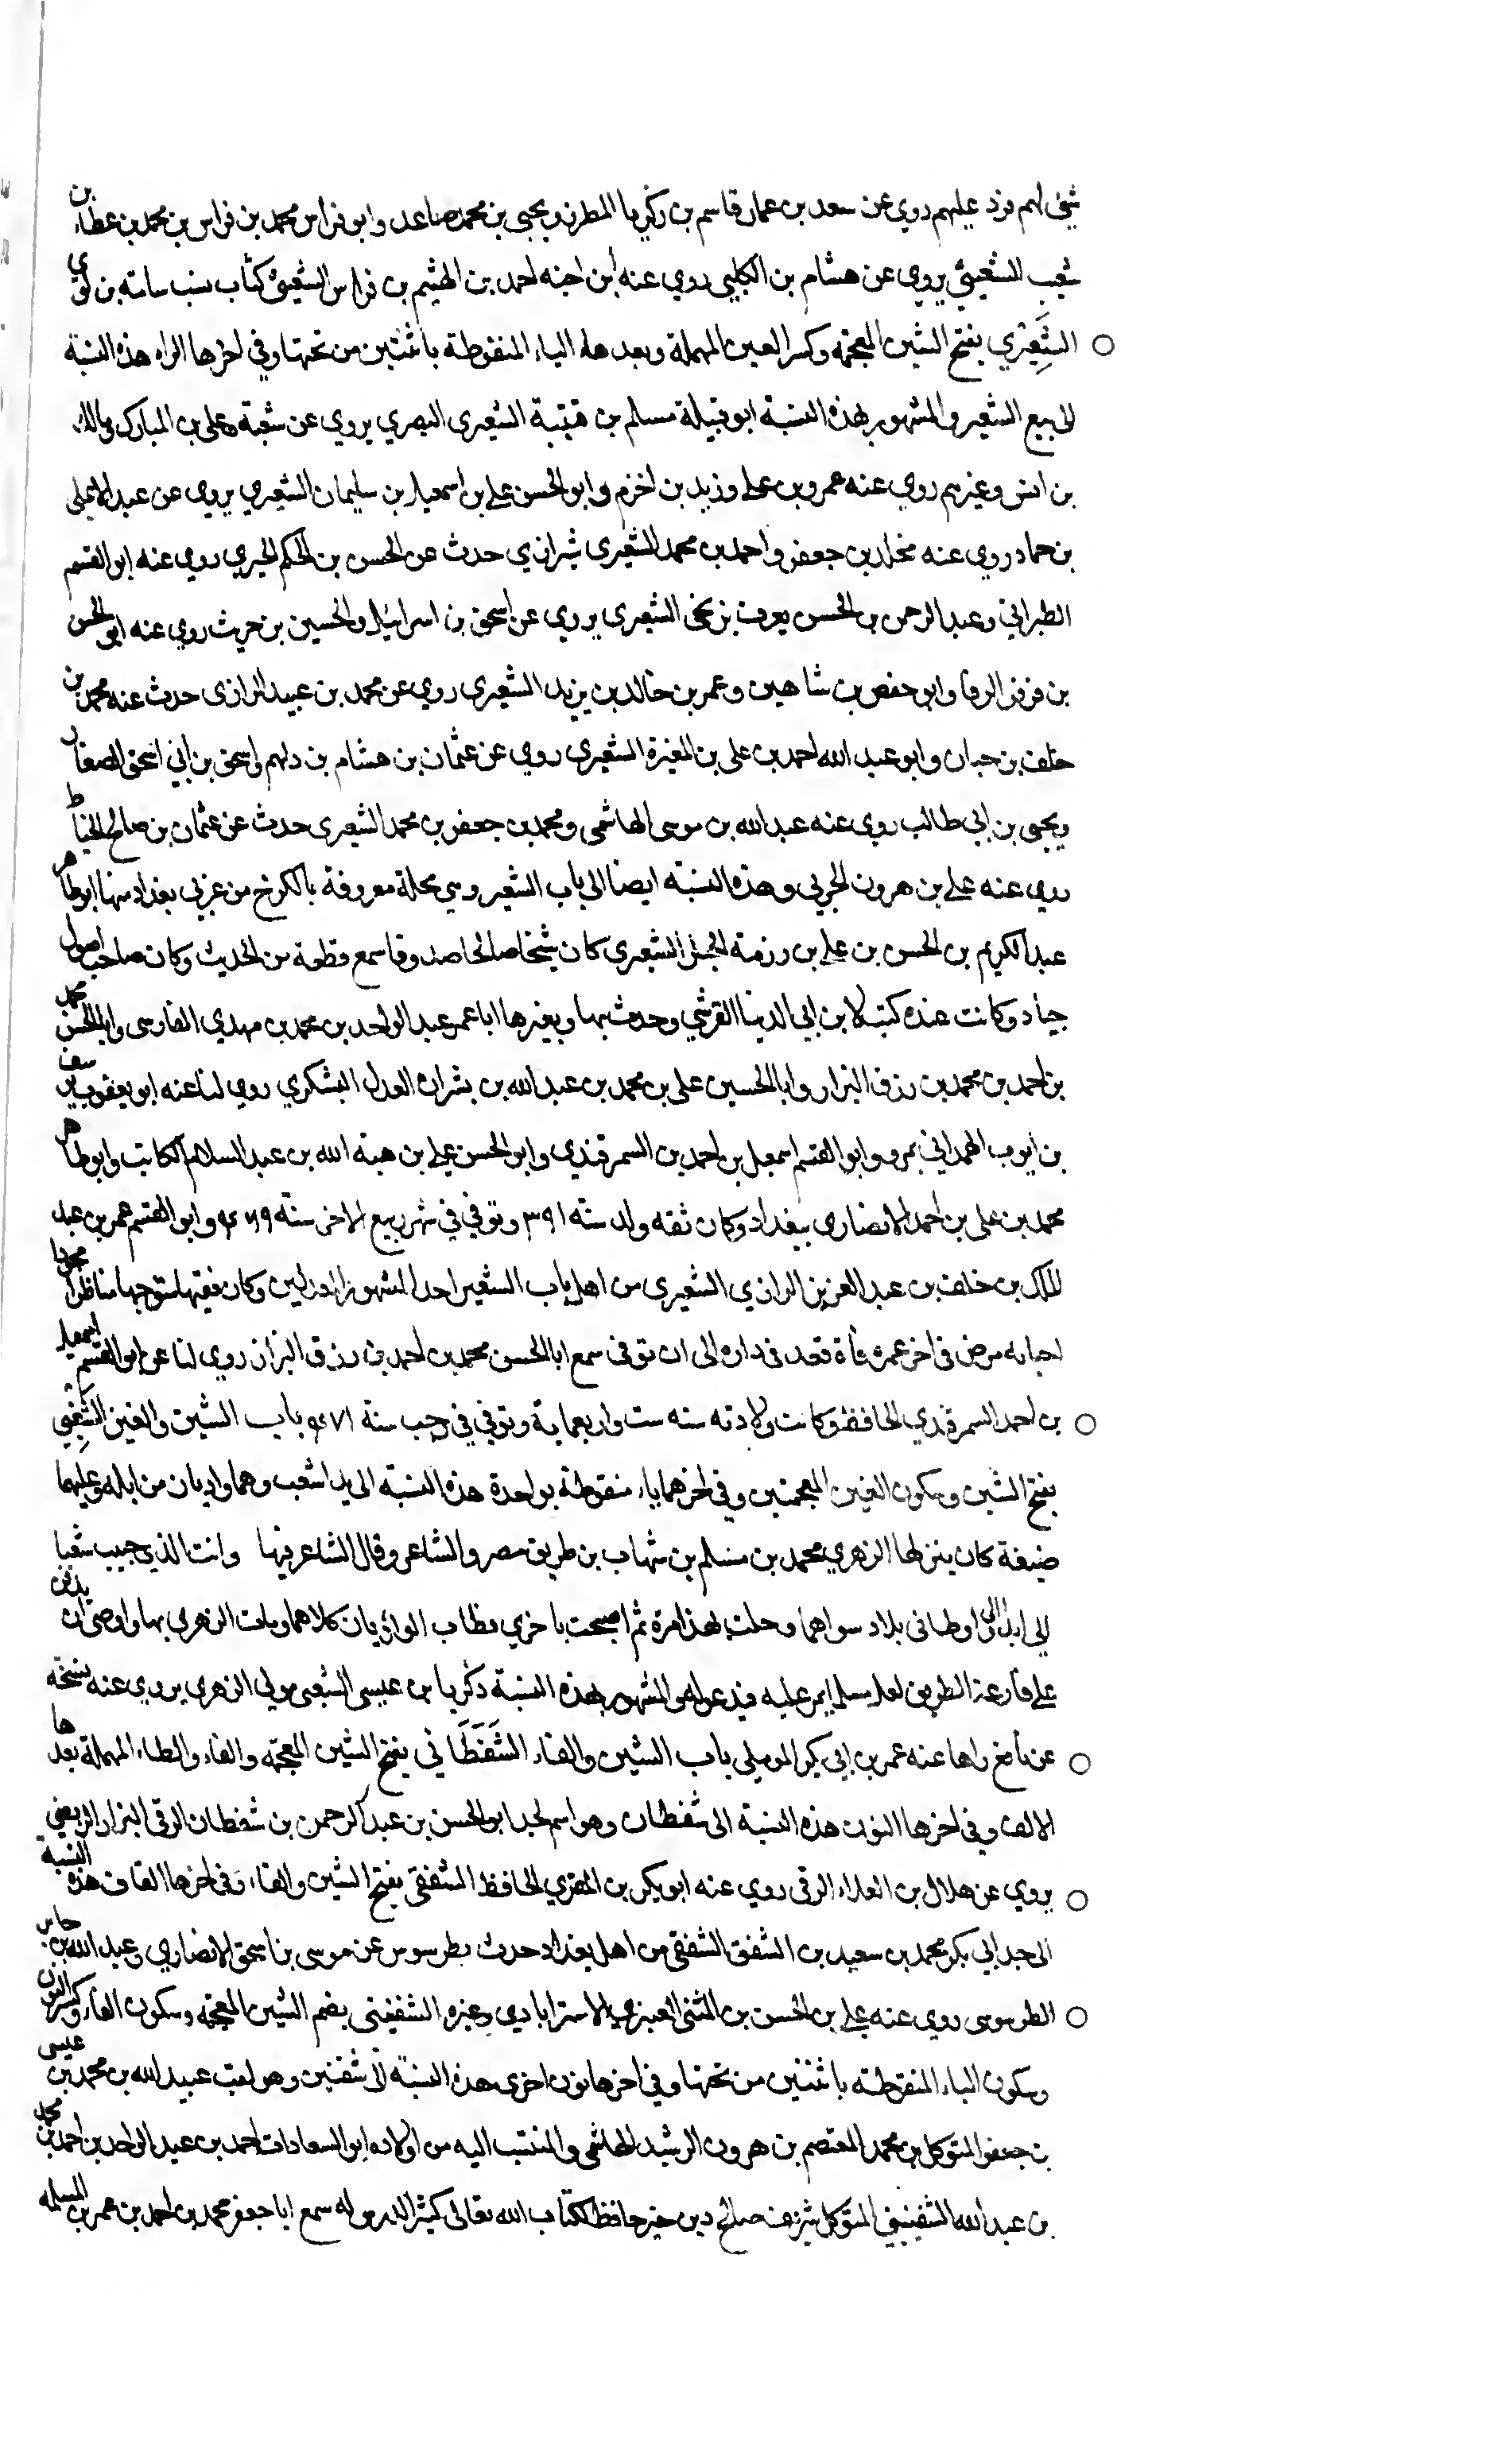 شئ لهم فرد عليهم روي عن سعد بن عمار قاسم بن زكريا المطرز ويحيى بن محمد صاعد وابو فراس محمد بن فراس بن محمد بن عطاء بن
شعيب الشعيثي يروي عن هشام بن الكلبي روي عنه ابن اخيه احمد بن الهيثم بن فراس الشعيثي كتاب نسب سامة بن لوي
الشَعِيْري بفتح الشين المعجمة وكسر العين المهملة وبعدها الياء المنقوطة باثنتين من تحتها وفي اخرها الراء هذه النسبة
الى بيع الشعير والمشهور بهذه النسبة ابو قتيبة مسلم بن قتيبة الشعيري البصري يروي عن شعبة وعلي بن المبارك ومالك
بن انس وغيرهم روي عنه عمرو بن علي وزيد بن اخزم وابو الحسن علي بن اسمعيل بن سليمان الشعيري يروي عن عبد الاعلى
بن حماد روي عنه مخلد بن جعفر واحمد بن محمد الشعيري شيرازي حدث عن الحسن بن الحكم الحيري روي عنه ابو القسم
الطبراني وعبد الرحمن بن الحسن يعرف بزنجي الشعيري يروي عن اسحق بن اسرائيل والحسين بن حريث روي عنه ابو الحسن
بن قزقز الرفا وابو حفص بن شاهين وعمر بن خالد بن يزيد الشعيري روي عن محمد بن عبيد الرازي حدث عنه محمد بن
خلف بن حبان وابو عبد الله احمد بن علي بن المغيرة الشعيري روي عن عثمان بن هشام بن دلهم واسحق بن ابي اسحق الصفار
ويحيى بن ابي طالب روي عنه عبد الله بن موسى الهاشمي ومحمد بن جعفر بن محمد الشعيري حدث عن عثمان بن صالح الخياط
روي عنه علي بن هرون الحربي وهذه النسبة ايضا الى باب الشعير وهي محلة معروفة بالكرخ من غربي بغداد منها ابو طاهر
عبد الكريم بن الحسن بن علي بن رزمة الشعيري كان شيخا صالحا صدوقا سمع قطعة من الحديث وكان صاحب اصول
جياد وكانت عنده كتب لابن ابي الدنيا القرشي وحدث بها وبغيرها ابا عمر عبد الواحد بن محمد بن مهدي الفارسي وابا الحسن محمد
بن احمد بن محمد بن رزق البزار وابا الحسين علي بن محمد بن عبد الله بن بشران العدل اليشكري روي لنا عنه ابو يعقوب يوسف
بن ايوب الهمداني بمرو وابو القسم اسمعيل بن احمد بن السمرقندي وابو الحسن علي بن هبة الله بن عبد السلام الكاتب وابو طاهر
محمد بن علي بن احمد الانصاري ببغداد وكان ثقه ولد سنة ٣٩١ وتوفي في شهر ربيع الاخر سنة ٤٦٩ وابو القسم عمر بن عبد
الملك بن خلف بن عبد العزيز الرازي الشعيري من اهل باب الشعير احد الشهود المعدلين وكان فقيها متوجها مناظرا مجودا
اصابه مرض في اخر عمره قعد في داره الى ان توفى سمع ابا الحسن محمد بن احمد بن رزق البزاز روي لنا عنه ابو القسم اسمعيل
بن احمد السمرقندي الحافظ وكانت ولادته سنه ست واربعماية وتوفي في رجب سنة ٤٧١ باب الشين والغين الشَغِبي
بفتح الشين وسكون الغين المعجمتين وفي اخرهما ياء منقوطة بواحدة هذه النسبة الى شغب وهما واديان من ايله وعليهما
ضيعة كان ينزلها الزهري محمد بن مسلم بن شهاب بن طريق مصر والشاعر وقال الشاعر فيها وانت الذي حبيب شغبا
الى اوطاني بلاد سواهما وحلت بهذا مرة ثم اصبحت باخري فطاب الواديان كلاهما ومات الزهري بها واوصى ان يدفن
على قارعة الطريق لعل مسلما يمر عليه فيدعو له والمشهور بهذه النسبة زكريا بن عيسى الشغبي مولى الزهري يروي عنه نسخة
عن نافع رواها عنه عمر بن ابي بكر الموصلي باب الشين والفاء الشَفَطَاني بفتح الشين المعجمة والفاء والطاء المهملة بعدها
الالف وفي اخرها النون هذه النسبة الى شفطان وهو اسم لجد ابو الحسن بن عبد الرحمن بن شفطان الرقي البزار الربضي
يروي عن هلال بن العلاء الرقي روي عنه ابو بكر بن المقري الحافظ الشفقي بفتح الشين والفاء وفي اخرها القاف هذه النسبة
الى جد ابي بكر محمد بن سعيد بن الشفق الشفقي من اهل بغداد حدث بطرسوس عن موسى بن اسحق الانصاري وعبد الله بن جابر
الطرسوسي روي عنه علي بن الحسن بن المثنى العنبري الاستراباذي وغيره الشفنيني بضم الشين المعجمة وسكون الفاء وكسر النون
وسكون الياء المنقوطة باثنتين من تحتها وفي اخرها نون اخرى هذه النسبة الى شفنين وهو لقب عبيد الله بن محمد بن عيسى
بن جعفر المتوكل بن محمد المعتصم بن هرون الرشيد الهاشمي والمنتسب اليه من اولاده ابو السعادات احمد بن عبد الواحد بن احمد بن محمد
بن عبد الله الشفنيني المتوكلي شريف صالح دين خير حافظ لكتاب الله تعالى كثير الدرس له سمع ابا جعفر محمد بن احمد بن عمر بن المسلمه